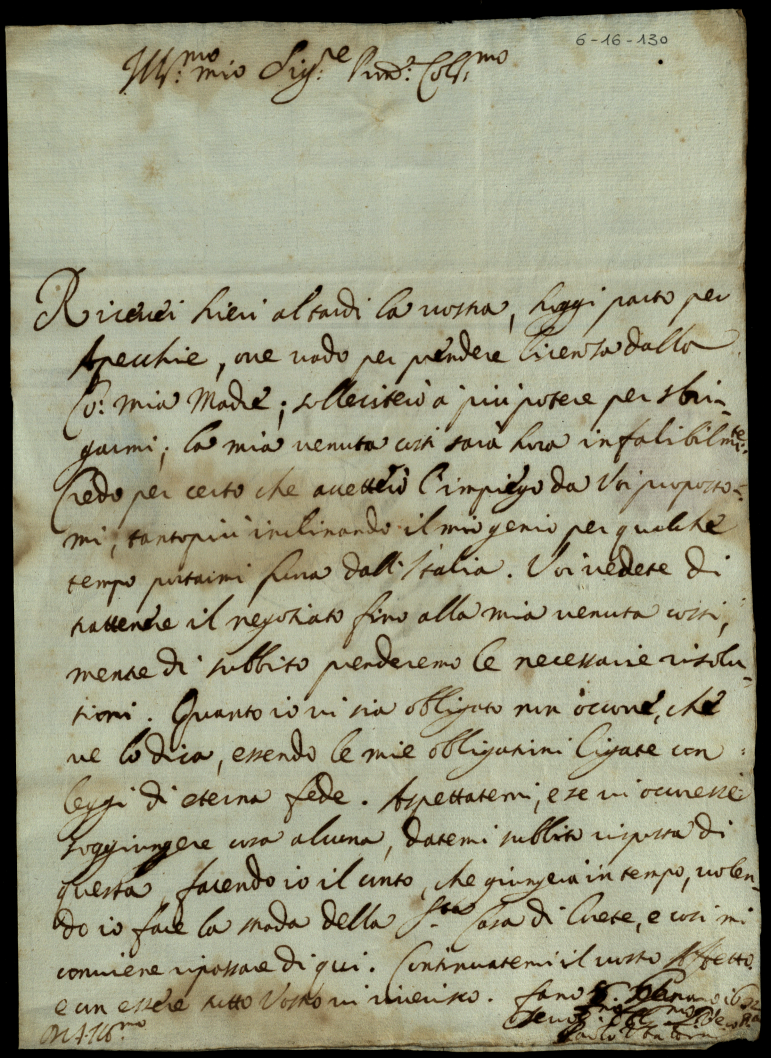 6-16-130
Ill.mo mio Sig.re Pron.e Col.mo
Ricevei hieri al tardi la vostra, hoggi parto per
Apecchie, ove vado per prendere licenza dalla
Co: mia Madre; solleciterò a più potere per sbri-
garmi; la mia venuta costì sarà hora infalibilm.te
Credo per certo che accetterò l'impiego da Voi proposto-
mi, tantopiù inclinando il mio genio per qualche
tempo portarmi fuora dall'Italia. Voi vedete di
trattenere il negotiato fino alla mia venuta costì,
mentre di subbito prenderemo le necessarie risolu-
tioni. Quanto io vi sia obligato non occorre, che
ve lo dica, essendo le mie obligationi ligate con
leggi di eterna fede. Aspettatemi, e se vi occoresse
soggiungere cosa alcuna, datemi subbito risposta di
questa, facendo io il conto, che giungerà in tempo, volen-
do io fare la strada della S.ta Casa di Loreto, e così mi
conviene ripassare di qui. Continuatemi il vostro Affetto
e con essere tutto Vostro vi riverisco. Fano